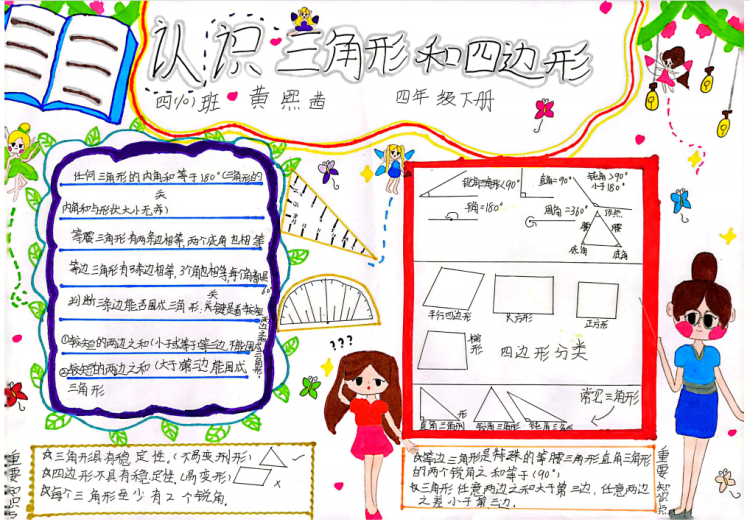 认识三角形和四边形
四(10)班 黄熙茜 四年级下册
任何三角形的内角和等于180°(三角形的
内角和与形状大小无关)
等腰三角形有两条边相等,两个底角也相等
等边三角形有3条边相等,3个角也相等,每个角都是60°
判断三条边能否围成三角形,关键是看较短两边之和
①较短的两边之和(小于或等于)第三边,不能围成三角形.
②较短的两边之和(大于)第三边,能围成
三角形
<90°
直角=90°
钝角>90°
小于180°
平角=180°
周角=360°
顶点
腰
腰
底角
底角
平行四边形
长方形
正方形
梯形
四边形分类
常见三角形
直角三角形
锐角三角形
钝角三角形
???
重要知识点
☆三角形具有稳定性,(不易变形)
☆四边形不具有稳定性,(易变形)
☆每个三角形至少有2个锐角.
☆等边三角形是特殊的等腰三角形直角三角形
的两个锐角之和等于(90°)
☆三角形任意两边之和大于第三边,任意两边
之差小于第三边.
重要知识点